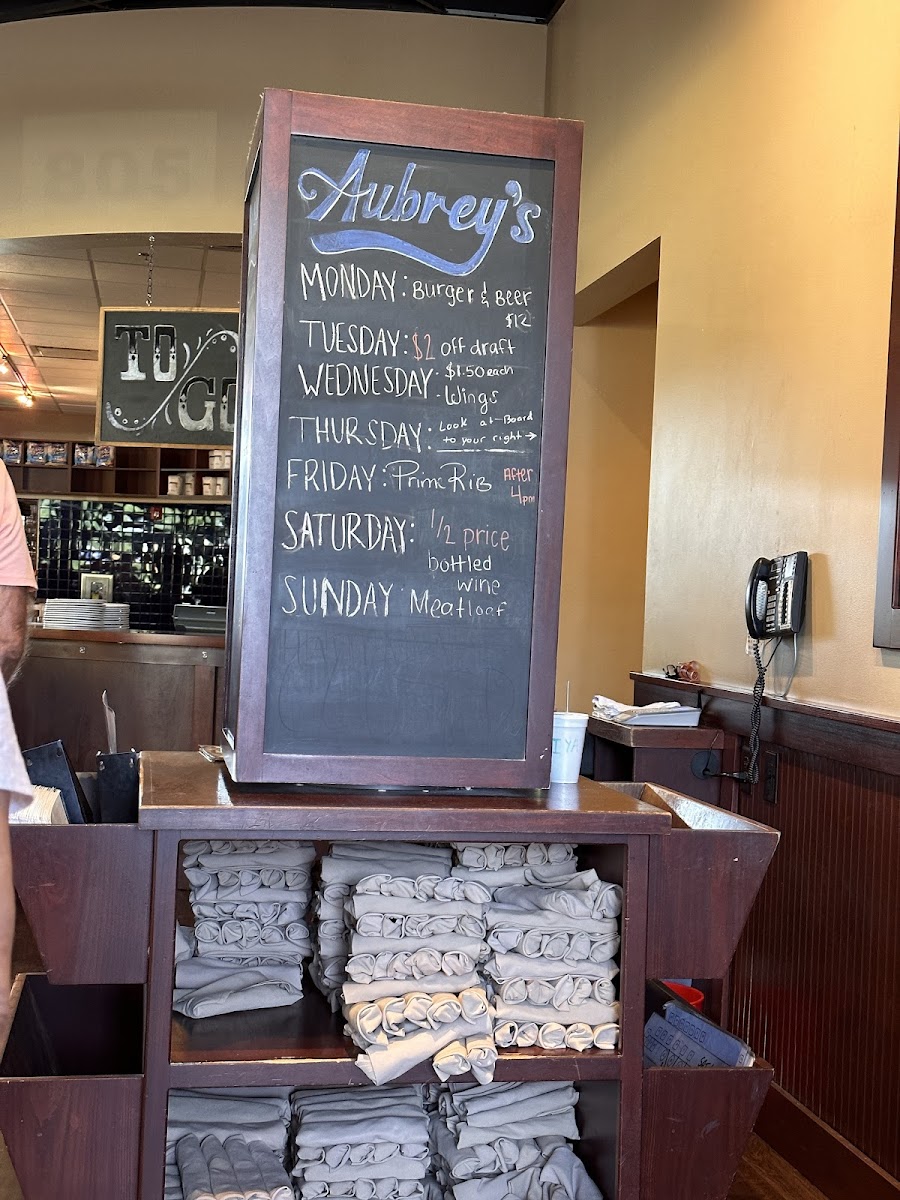 Aubrey's
MONDAY: Burger & Beer
$12
TUESDAY: $2 off draft
WEDNESDAY - $1.50 each
- Wings
THURSDAY: Look at Board
to your right →
FRIDAY: Prime Rib After
4pm
SATURDAY: 1/2 price
bottled
wine
SUNDAY: Meatloaf
TO
GO
805